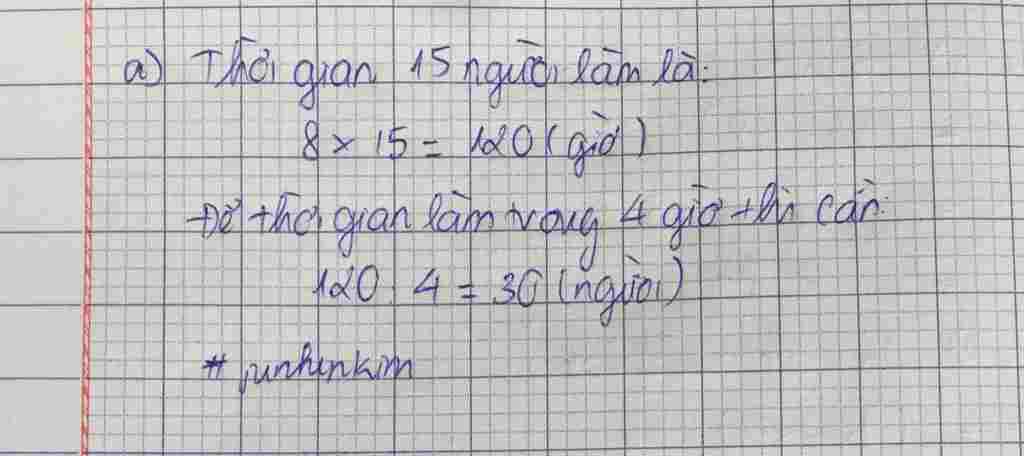 a) Thời gian 15 người làm là:
8 x 15 = 120 (giờ)
Để thời gian làm trong 4 giờ thì cần:
120 : 4 = 30 (người)
# junhunkim